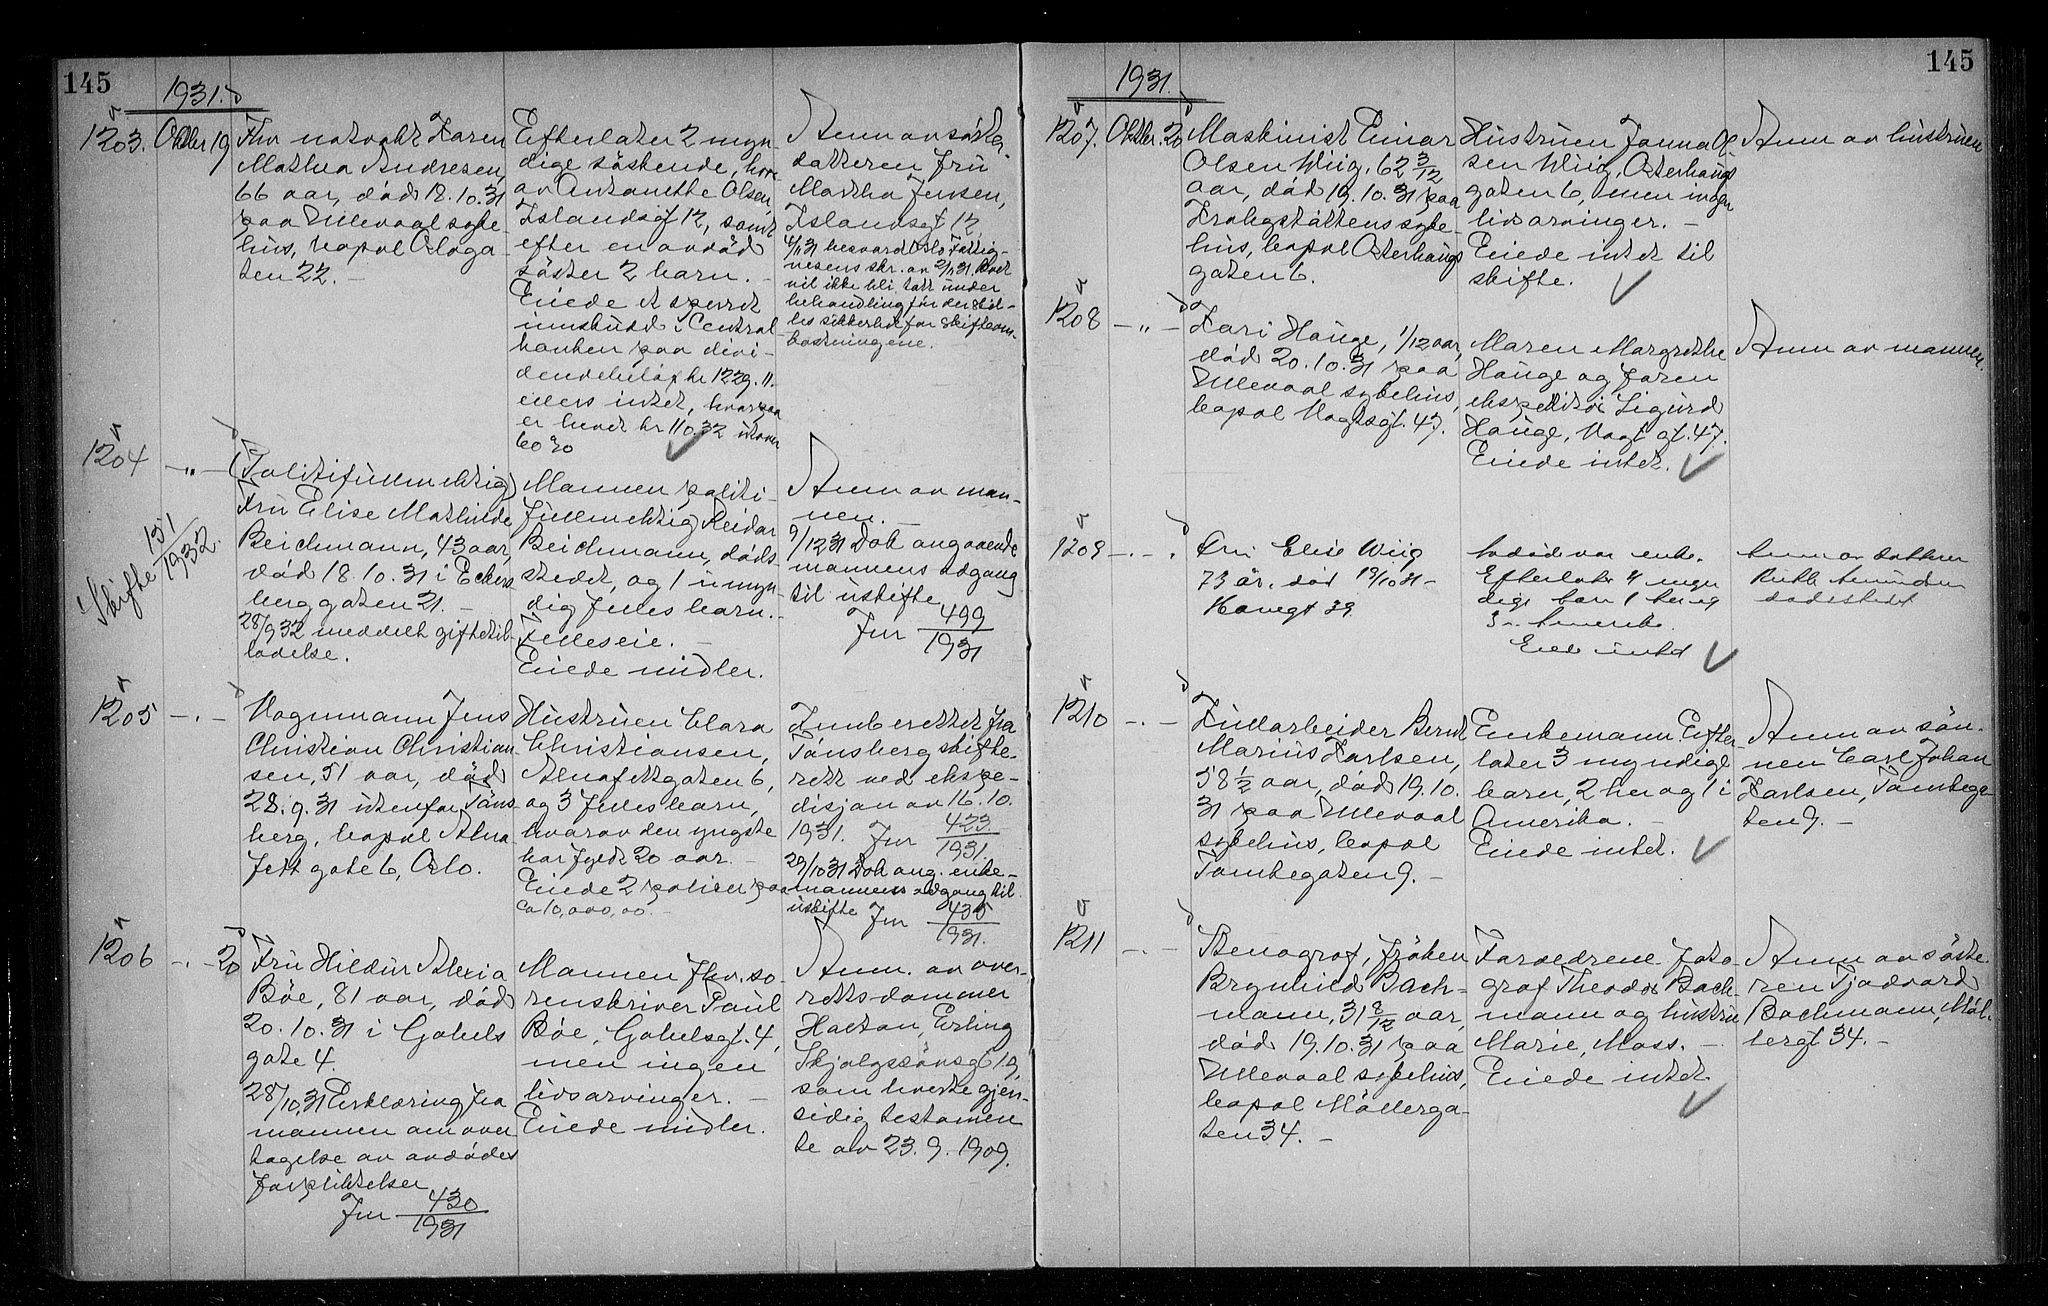 145
1931.
1203. Oktbr 19
Fhv natvakt Karen
Mathea Andresen,
66 aar, död 18.10.31
paa Ullevaal syke-
hus, bopæl Akega
ten 22. –
Efterlater 2 myn
dige söskende, hvor
av Antonette Olsen
Islandsgt 12, samt
efter en avdöd
söster 2 barn. –
Eiede et sperret
innskudd i Central
banken paa divi-
dendebelöp kr 1229.11.
ellers intet, hvorpaa
er hevet kr 110.32 utover
60 %
Anm av söster-
datteren fru
Martha Jensen,
Islandsgt 12
4/11 31 besvart Oslo Fattig-
vesens skr. av 2/11 31. Boet
vil ikke bli tatt under
behandling för der stil-
les sikkerhet for skifteom-
kostningene.
1204 – " –
Skifte 151/1932.
(Politifullmektig)
Fru Elise Mathilde
Beichmann, 43 aar,
död 18.10.31 i Eckers
berggaten 21. –
28/9 32 meddelt giftetil-
ladelse.
Mannen politi-
fullmektig Reidar
Beichmann, döds
stedet, og 1 umyn
dig felles barn. –
Felleseie. –
Eiede midler.
Anm av man-
nen. –
9/12 31 Dok angaaende
mannens adgang
til uskifte
Jnr 499/1931
1205 – . –
Vognmann Jens
Christian Christian
sen, 51 aar, död
28.9.31 utenfor Töns
berg, bopæl Alna
fett gate 6, Oslo.
Hustruen Clara
Christiansen,
Alnafettgaten 6,
og 3 felles barn,
hvorav den yngste
har fyldt 20 aar. –
Eiede 2 poliser paa
ca 10,000,00. –
Innberettet fra
Tönsberg skifte-
rett ved ekspe-
disjon av 16.10.
1931. Jnr 423/1931
29/10 31 Dok ang. enke-
mannens adgang til
uskifte Jnr 435/1931.
1206 – . – 20
Fru Hildur Alexia
Böe, 81 aar, död
20.10.31 i Gabels
gate 4.
28/10 31 Erklæring fra
mannen om over
tagelse av avdödes
forpliktelser
Jnr 430/1931
Mannen fhv. so-
renskriver Paul
Böe, Gabelsgt. 4,
men ingen
livsarvinger. –
Eiede midler.
Anm. av over-
rettsdommer
Haakon, Erling
Skjalgssönsgt 19,
som hverte gjen-
sidig testamen
te av 23.9.1909.
145
1931.
1207. Oktbr. 20
Maskinist Einar
Olsen Wiig, 62 3/12
aar, död 19.10.31 paa
Krohgstöttens syke-
hus, bopæl Osterhaugs
gaten 6.
Hustruen Janna Ol-
sen Wiig, Osterhaugs
gaten 6, men ingen
livsarvinger. –
Eiede intet til
skifte.
Anm av hustruen
1208 – " –
Kari Hauge, 1/12 aar,
död 20.10.31 paa
Ullevaal sykehus,
bopæl Vogtsgt. 47.
Maren Margrethe
Hauge og faren
ekspeditör Sigurd
Hauge, Vogtsgt. 47.
Eiede intet.
Anm av mannen.
1209 – . – .
Fru Elise Wiig
73 år. död 19/10 31 –
Havegt 39
Avdöd var enke.
Efterlater 4 myn
dige barn 1 her og
3 i Amerika.
Eiede intet
Anm av datteren
Ruth Amundsen
dödsstedet
1210 – . –
Kullarbeider Bernt
Marius Karlsen,
58 1/2 aar, död 19.10.
31 paa Ullevaal
sykehus, bopæl
Tomtegaten 9. –
Enkemann Efter-
later 3 myndige
barn, 2 her og 1 i
Amerika. –
Eiede intet.
Anm av sön-
nen Carl Johan
Karlsen, Tomtega
ten 9. –
1211 – . –
Stenograf, fröken
Brynhild Bach-
mann, 31 8/12 aar,
död 19.10.31 paa
Ullevaal sykehus,
bopæl Möllerga-
ten 34. –
Foreldrene foto
graf Theodor Bach-
mann og hustru
Marie, Moss. –
Eiede intet
Anm av söste
ren Tjodvord
Bachmann, Möl-
lergt 34. –